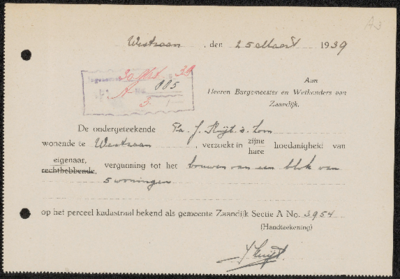 A3
Westzaan, der 25 Maart 1939
Ingekomen
A No. 885
5
Aan
Heeren Burgemeester en Wethouders van
Zaandijk.
De ondergeteekende Fa. J. Kuijt & Zoon
wonende te Westzaan, verzoekt in zijne hoedanigheid van
hare
eigenaar,
rechthebbende, vergunning tot het bouwen van een blok van
5 woningen
op het perceel kadastraal bekend als gemeente Zaandijk Sectie A No. 3954
(Handteekening)
J Kuijt